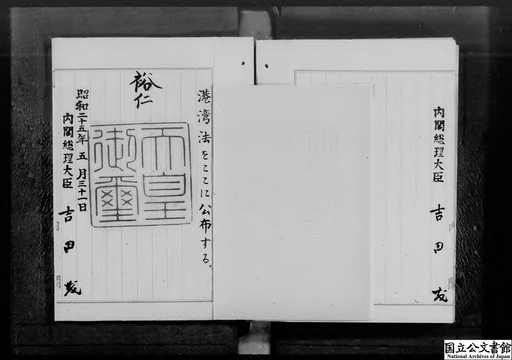 内閣総理大臣 吉田茂
港湾法をここに公布する。
裕仁
天皇御璽
昭和二十五年五月三十一日
内閣総理大臣 吉田茂
国立公文書館
National Archives of Japan